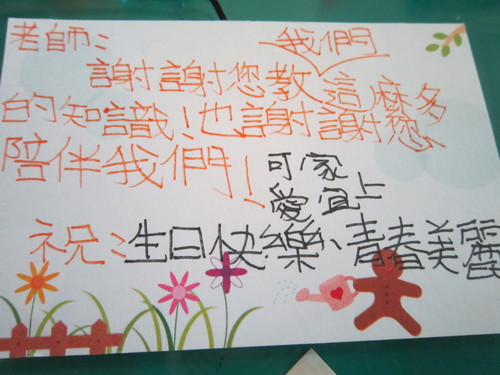 老師：
謝謝您教我們這麼多
的知識！也謝謝您
陪伴我們！
祝：生日快樂、青春美麗
可愛
家宜上